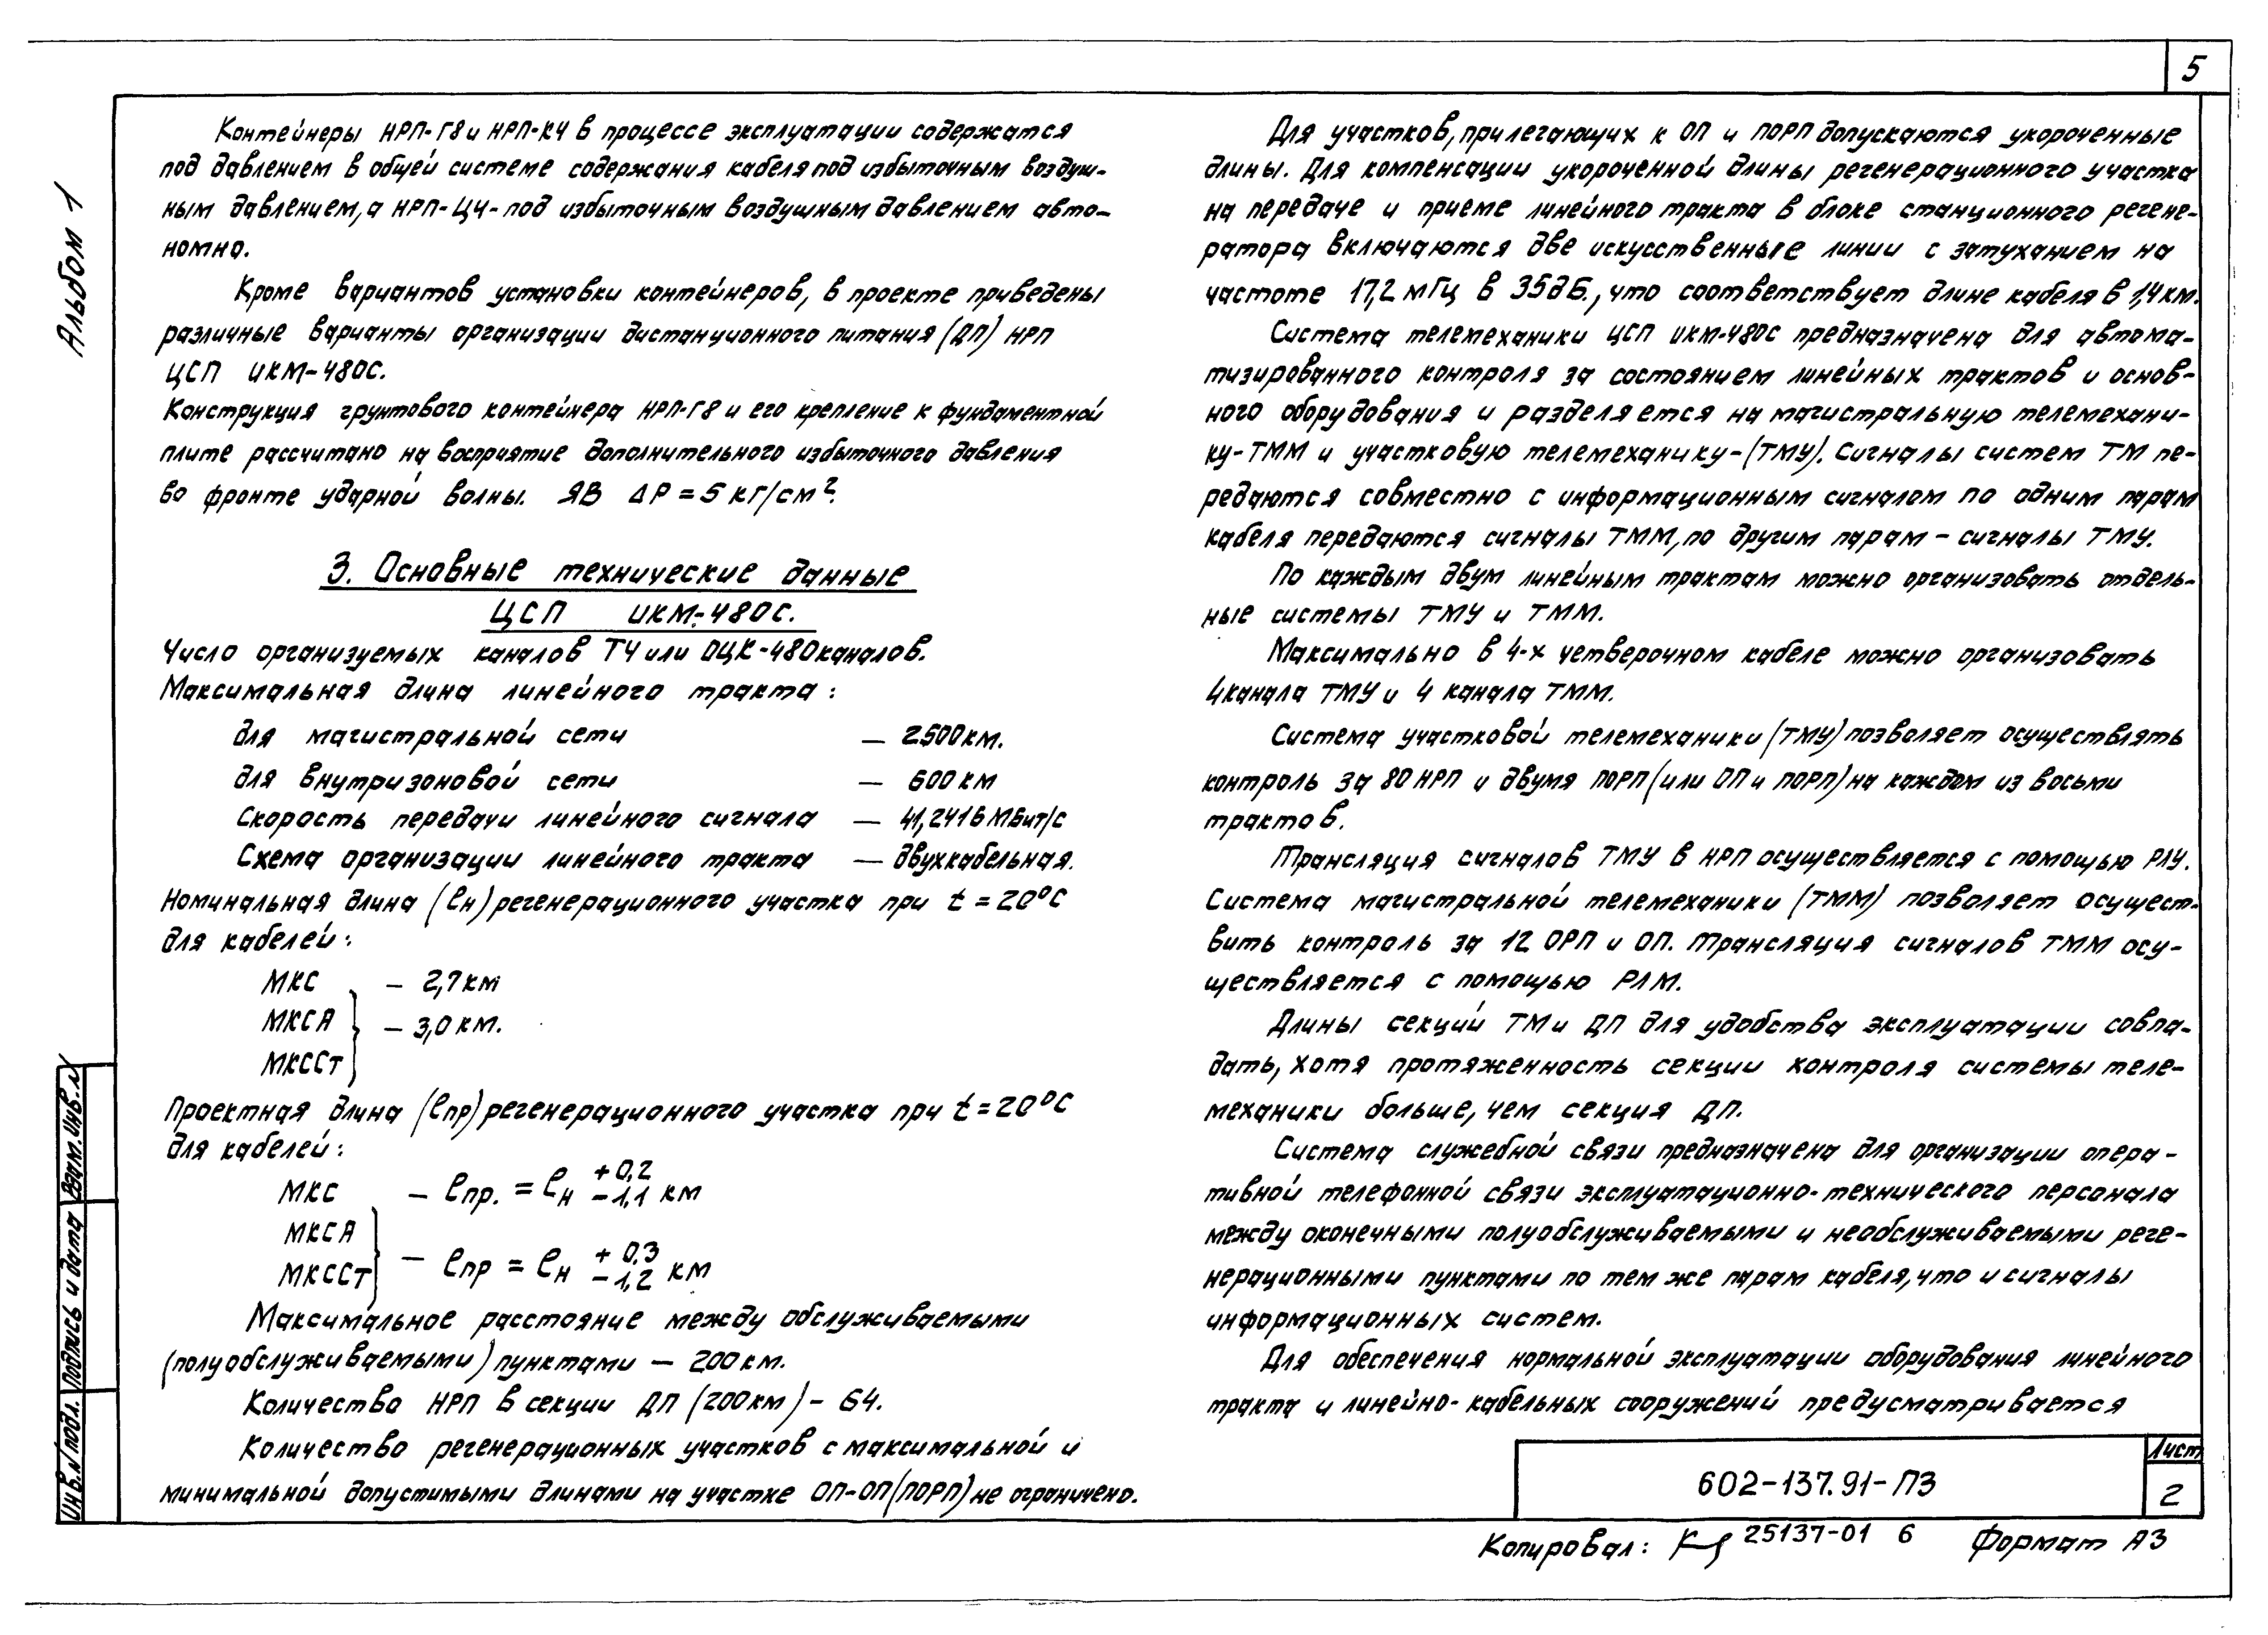 5
Альбом 1
Контейнеры НРП-Г8 и НРП-К4 в процессе эксплуатации содержатся
под давлением в общей системе содержания кабеля под избыточным воздуш-
ным давлением, а НРП-Ц4-под избыточным воздушным давлением авто-
номно.
Кроме вариантов установки контейнеров, в проекте приведены
различные варианты организации дистанционного питания (ДП) НРП
ЦСП ИКМ-480С.
Конструкция грунтового контейнера НРП-Г8 и его крепление к фундаментной
плите рассчитано на восприятие дополнительного избыточного давления
во фронте ударной волны. ЯВ ΔР = 5 кг/см².
3. Основные технические данные
ЦСП ИКМ-480С.
Число организуемых каналов ТЧ или ОЦК-480 каналов.
Максимальная длина линейного тракта:
для магистральной сети — 2500 км.
для внутризоновой сети — 600 км
Скорость передачи линейного сигнала — 41,2416 Мбит/с
Схема организации линейного тракта — двухкабельная.
Номинальная длина (ℓн) регенерационного участка при t = 20°С
для кабелей:
МКС – 2,7 км
МКСА – 3,0 км.
МКССт
Проектная длина (ℓпр) регенерационного участка при t = 20°С
для кабелей:
МКС – ℓпр. = ℓн +0,2 –1,1 км
МКСА
МКССт – ℓпр = ℓн +0,3 –1,2 км
Максимальное расстояние между обслуживаемыми
(полуобслуживаемыми) пунктами — 200 км.
Количество НРП в секции ДП (200 км) – 64.
Количество регенерационных участков с максимальной и
минимальной допустимыми длинами на участке ОП-ОП (ПОРП) не ограничено.
Для участков, прилегающих к ОП и ПОРП допускаются укороченные
длины. Для компенсации укороченной длины регенерационного участка
на передаче и приеме линейного тракта в блоке станционного регене-
ратора включаются две искусственные линии с затуханием на
частоте 17,2 мГц в 35дБ., что соответствует длине кабеля в 1,4 км.
Система телемеханики ЦСП ИКМ-480С предназначена для автома-
тизированного контроля за состоянием линейных трактов и основ-
ного оборудования и разделяется на магистральную телемехани-
ку-ТММ и участковую телемеханику-(ТМУ). Сигналы систем ТМ пе-
редаются совместно с информационным сигналом по одним парам
кабеля передаются сигналы ТММ, по другим парам – сигналы ТМУ.
По каждым двум линейным трактам можно организовать отдель-
ные системы ТМУ и ТММ.
Максимально в 4-х четверочном кабеле можно организовать
4 канала ТМУ и 4 канала ТММ.
Система участковой телемеханики (ТМУ) позволяет осуществлять
контроль за 80 НРП и двумя ПОРП (или ОП и ПОРП) на каждом из восьми
трактов.
Трансляция сигналов ТМУ в НРП осуществляется с помощью РЛУ.
Система магистральной телемеханики (ТММ) позволяет осущест-
вить контроль за 12 ОРП и ОП. Трансляция сигналов ТММ осу-
ществляется с помощью РЛМ.
Длины секций ТМ и ДП для удобства эксплуатации совпа-
дать, хотя протяженность секции контроля системы теле-
механики больше, чем секция ДП.
Система служебной связи предназначена для организации опера-
тивной телефонной связи эксплуатационно-технического персонала
между оконечными полуобслуживаемыми и необслуживаемыми реге-
нерационными пунктами по тем же парам кабеля, что и сигналы
информационных систем.
Для обеспечения нормальной эксплуатации оборудования линейного
тракта и линейно-кабельных сооружений предусматривается
Инв.№ подл. Подпись и дата Взам.инв.№
602-137.91-ПЗ
Лист
2
Копировал: 25137-01 6 Формат А3